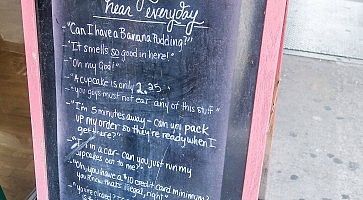 hear everyday
-"Can I have a Banana Pudding?"
-"It smells so good in here!"
-"Oh my God!"
-"A cupcake is only 2.25"
-"you guys must not eat any of this stuff"
-"I'm 5 minutes away - Can you pack
up my order so they're ready when I
get there?"
I'm in a car- can you just run my
cupcakes out to me?"
-"Oh, you have a $10 credit card minimum?
you know thats illegal, right"
-"You're closed?